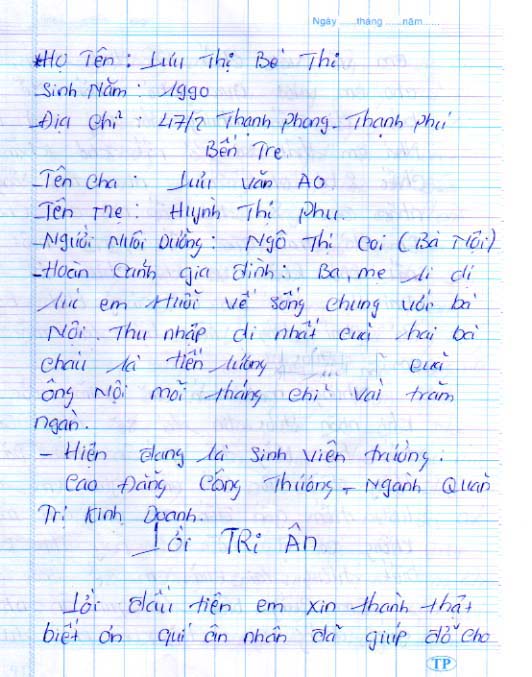 Ngày ......tháng ......năm ......
*Họ Tên : Lưu Thị Bé Thi
- Sinh Năm : 1990
- Địa chỉ : 47/2 Thạnh phong - Thạnh phú
Bến Tre
- Tên cha : Lưu Văn AO
- Tên mẹ : Huỳnh Thị Phu.
- Người Nuôi Dưỡng : Ngô Thị Coi (Bà Nội)
- Hoàn cảnh gia đình : Ba, mẹ li dị
lúc em tuổi về sống chung với bà
Nội. Thu nhập di nhất của hai bà
cháu là tiền lương của
ông Nội mỗi tháng chỉ vài trăm
ngàn.
- Hiện đang là sinh viên trường.
Cao Đẳng Công Thương - Ngành Quản
Trị Kinh Doanh.
Lời TRi Ân
Lời đầu tiên em xin thành thật
biết ơn quí ân nhân đã giúp đỡ cho
TP